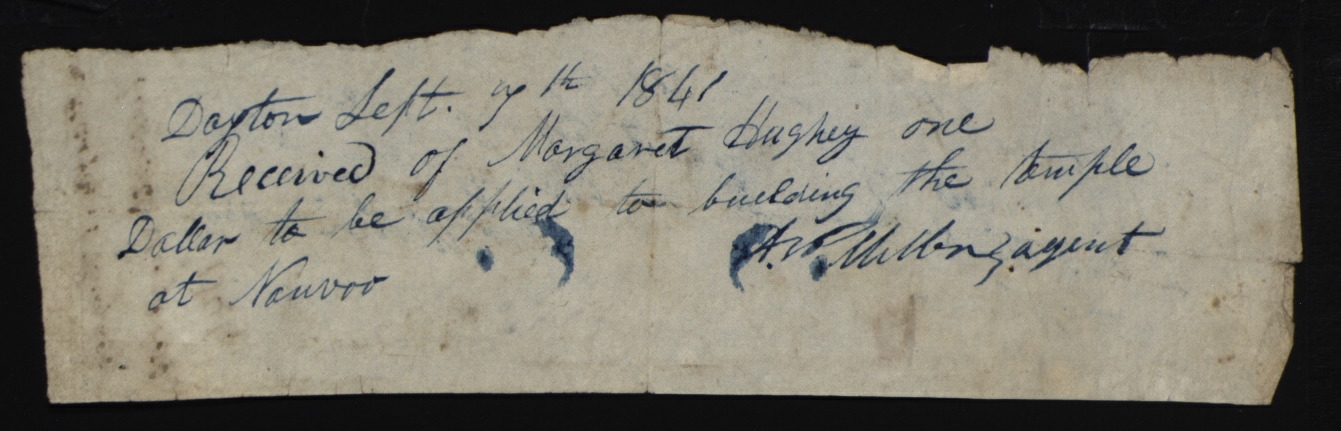 Dayton Sept. 7th 1841
Received of Margaret Hughey one
Dollar to be applied to building the temple
at Nauvoo
agent